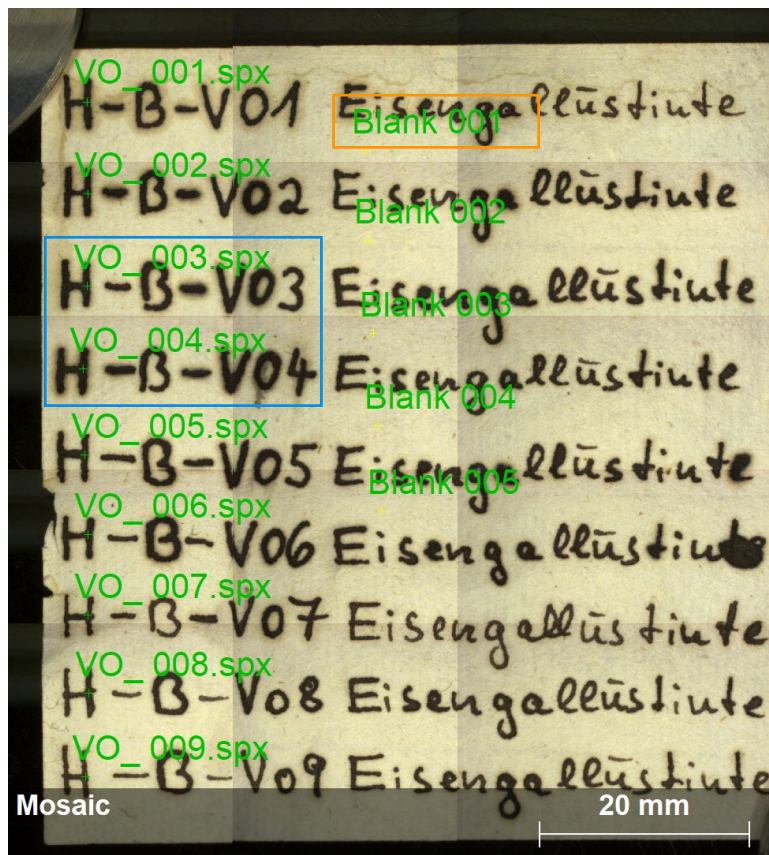 VO_ 001.spx
H-B-V01 Eisengallūstinte
Blank 001
VO_ 002.spx
H-B-V02 Eisengallūstinte
Blank 002
VO_ 003.spx
H-B-V03 Eisengallūstinte
Blank 003
VO_ 004.spx
H-B-V04 Eisengallūstinte
Blank 004
VO_ 005.spx
H-B-V05 Eisengallūstinte
Blank 005
VO_ 006.spx
H-B-V06 Eisengallūstinte
VO_ 007.spx
H-B-V07 Eisengallūstinte
VO_ 008.spx
H-B-V08 Eisengallūstinte
VO_ 009.spx
H-B-V09 Eisengallūstinte
Mosaic 20 mm